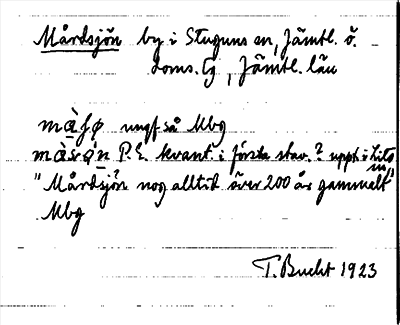 Mårdsjön by i Stuguns sn, Jämtl. ö.
doms. lg, Jämtl. län
ungf så Mbg
P.E. kvant. i första stav.? uppt i
"Mårdsjön nog alltid över 200 år gammelt"
Mbg
T. Bucht 1923